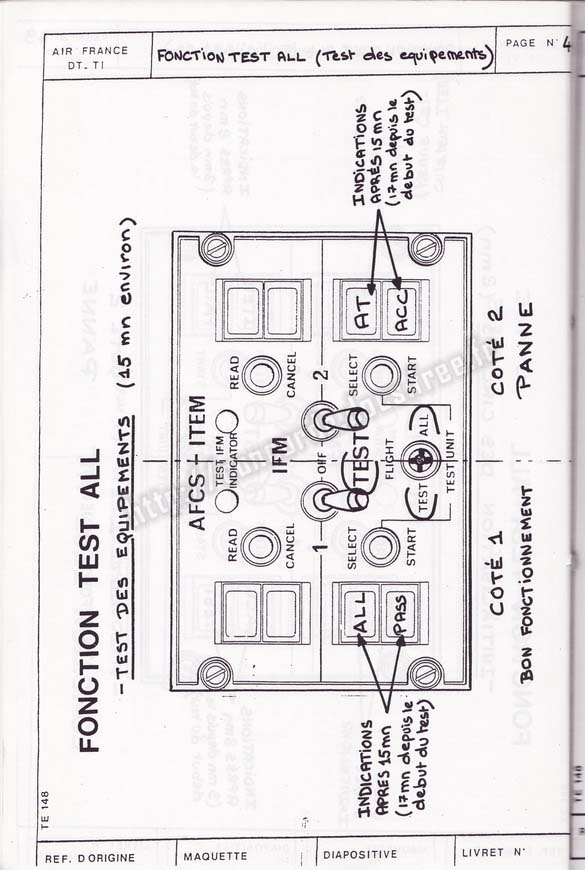 AIR FRANCE
DT. TI
FONCTION TEST ALL (Test des equipements)
PAGE N° 4
FONCTION TEST ALL
- TEST DES EQUIPEMENTS (15 mn environ)
AFCS - ITEM
READ
CANCEL
TEST IFM
INDICATOR
READ
CANCEL
IFM
1
OFF
2
TEST
SELECT
START
FLIGHT
SELECT
START
TEST
ALL
TEST UNIT
ALL
PASS
AT
ACC
INDICATIONS
APRÈS 15mn
(17mn depuis le
debut du test)
INDICATIONS
APRÈS 15mn
(17mn depuis le
debut du test)
COTÉ 1
BON FONCTIONNEMENT
COTÉ 2
PANNE
TE 148
REF. D'ORIGINE
MAQUETTE
DIAPOSITIVE
LIVRET N°
TE 148